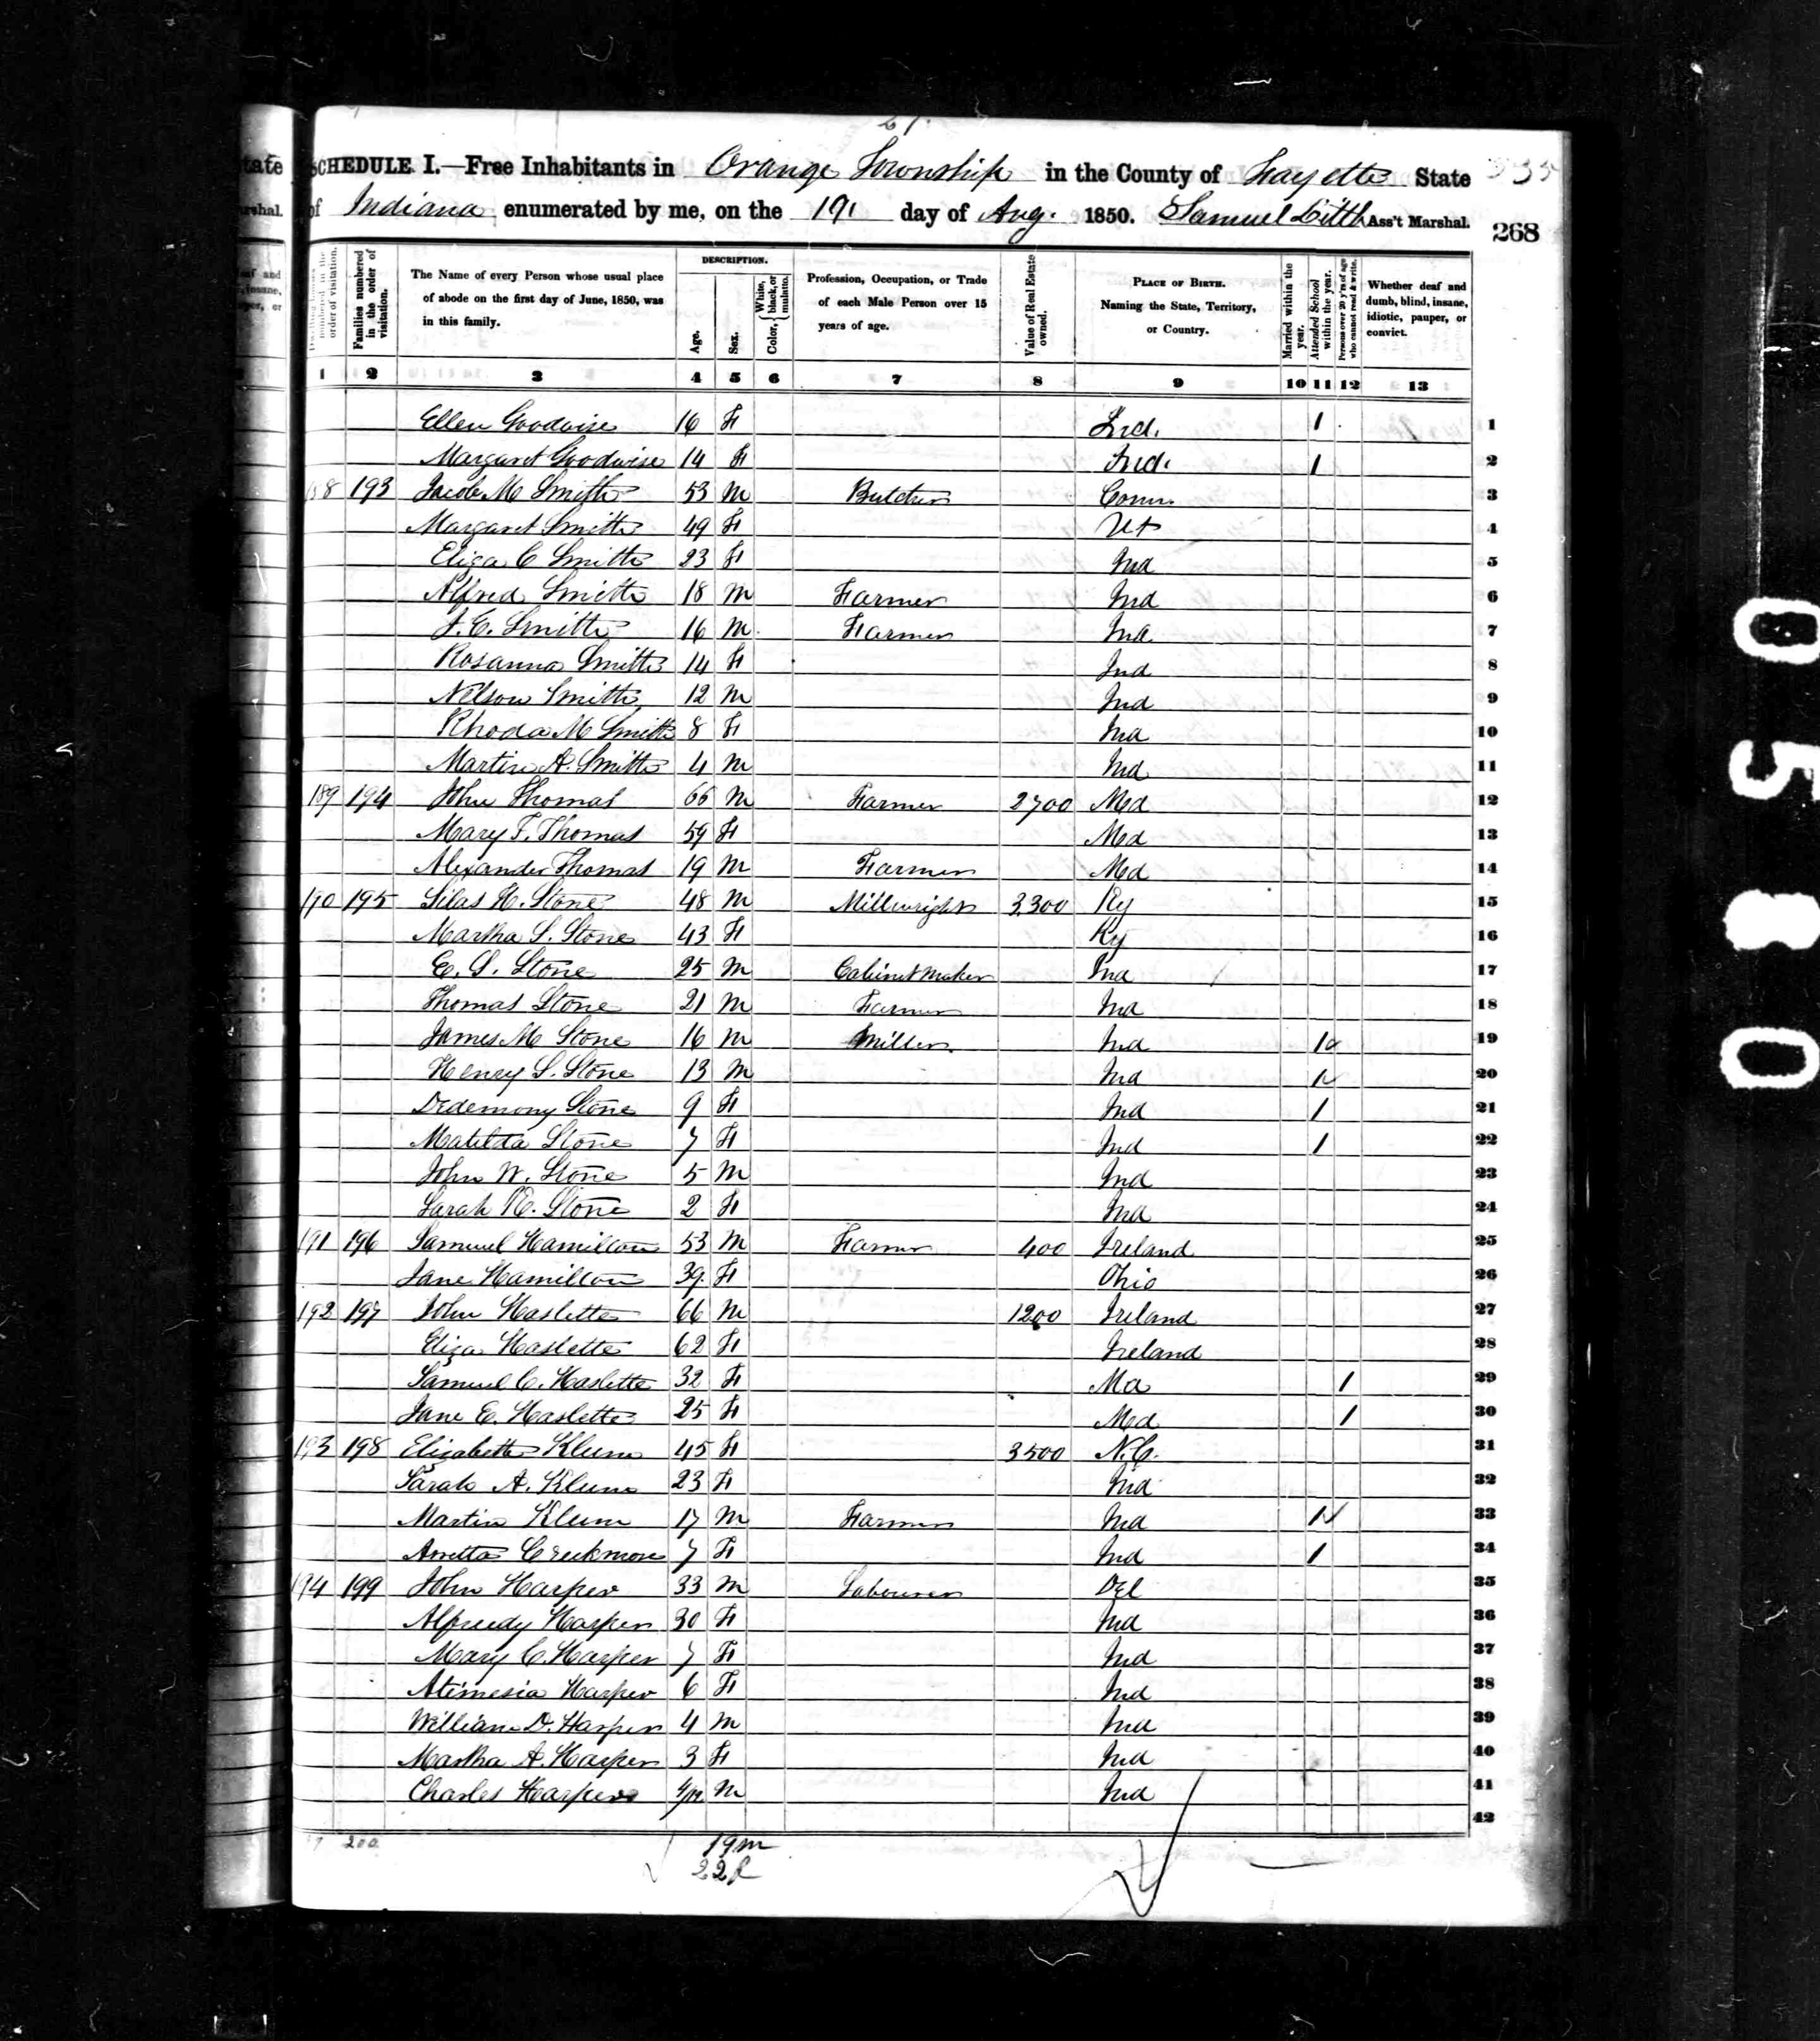 SCHEDULE I.—Free Inhabitants in Orange Township in the County of Fayette State
of Indiana enumerated by me, on the 19 day of Aug. 1850. Samuel Ass't Marshal.
268
Families numbered in the order of visitation.
The Name of every Person whose usual place of abode on the first day of June, 1850, was in this family.
DESCRIPTION.
Age.
Sex.
Color, { White, black, or mulatto.
Profession, Occupation, or Trade of each Male Person over 15 years of age.
Value of Real Estate owned.
PLACE OF BIRTH. Naming the State, Territory, or Country.
Married within the year.
Attended School within the year.
Persons over 20 y'rs of age who cannot read & write.
Whether deaf and dumb, blind, insane, idiotic, pauper, or convict.
1 2 3 4 5 6 7 8 9 10 11 12 13
Ellen Goodwise 16 F Ind. 1 1
Margaret Goodwise 14 F Ind. 1 2
188 193 Jacob M Smith 53 M Butcher Conn. 3
Margaret Smith 49 F 4
Eliza C Smith 23 F Ind 5
Alfred Smith 18 M Farmer Ind 6
J. E. Smith 16 M Farmer Ind 7
Rosanna Smith 14 F Ind 8
Nelson Smith 12 M Ind 9
Rhoda M Smith 8 F Ind 10
Martin A. Smith 4 M Ind 11
189 194 John Thomas 66 M Farmer 2700 Md 12
Mary F. Thomas 59 F Md 13
Alexander Thomas 19 M Farmer Md 14
190 195 Silas H. Stone 48 M Millwright 3,300 Ky 15
Martha S. Stone 43 F Ky 16
E. S. Stone 25 M Cabinet Maker Ind 17
Thomas Stone 21 M Farmer Ind 18
James M Stone 16 M Miller Ind 1 19
Henry S. Stone 13 M Ind 1 20
Dedemony Stone 9 F Ind 1 21
Matilda Stone 7 F Ind 1 22
John W. Stone 5 M Ind 23
Sarah E. Stone 2 F Ind 24
191 196 Samuel Hamilton 53 M Farmer 400 Ireland 25
Jane Hamilton 39 F Ohio 26
192 197 John Haslette 66 M 1200 Ireland 27
Eliza Haslette 62 F Ireland 28
Samuel C. Haslette 32 F Md 1 29
Jane E. Haslette 25 F Md 1 30
193 198 Elizabeth Klum 45 F 3500 N.C. 31
Sarah A. Klum 23 F Ind 32
Martin Klum 17 M Farmer Ind 1 33
Creekmore 7 F Ind 1 34
194 199 John Harper 33 M Labourer Del 35
Alfreedy Harper 30 F Ind 36
Mary C. Harper 7 F Ind 37
Atimesia Harper 6 F Ind 38
William D. Harper 4 M Ind 39
Martha A. Harper 3 F Ind 40
Charles Harper 4/12 M Ind 41
42
200
19 m
22 f
0580